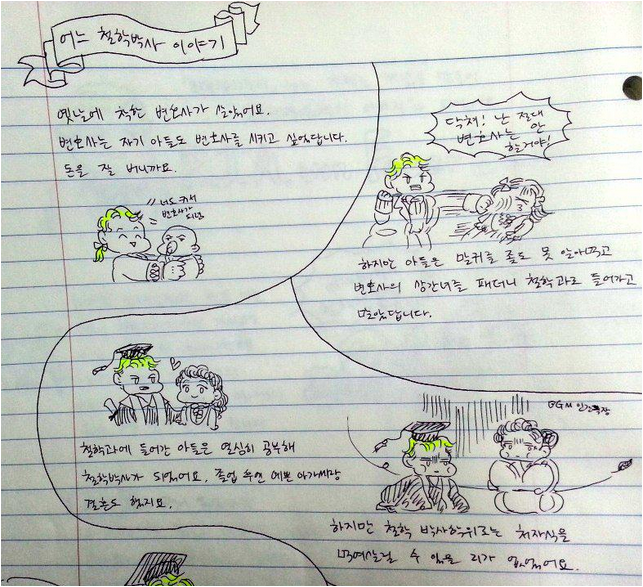 어느 철학박사 이야기
옛날에 착한 변호사가 살았어요.
변호사는 자기 아들도 변호사를 시키고 싶었답니다.
돈을 잘 버니까요.
너도 커서
변호사가
되렴
닥쳐! 난 절대
변호사는 안
할거야!
하지만 아들은 말귀를 좆도 못 알아먹고
변호사의 상간녀를 패더니 철학과로 들어가고
말았답니다.
철학과에 들어간 아들은 열심히 공부해
철학박사가 되었어요. 졸업 후엔 예쁜 아가씨랑
결혼도 했지요.
BGM 인간극장
하지만 철학 박사학위로는 처자식을
먹여살릴 수 있을 리가 없었어요.